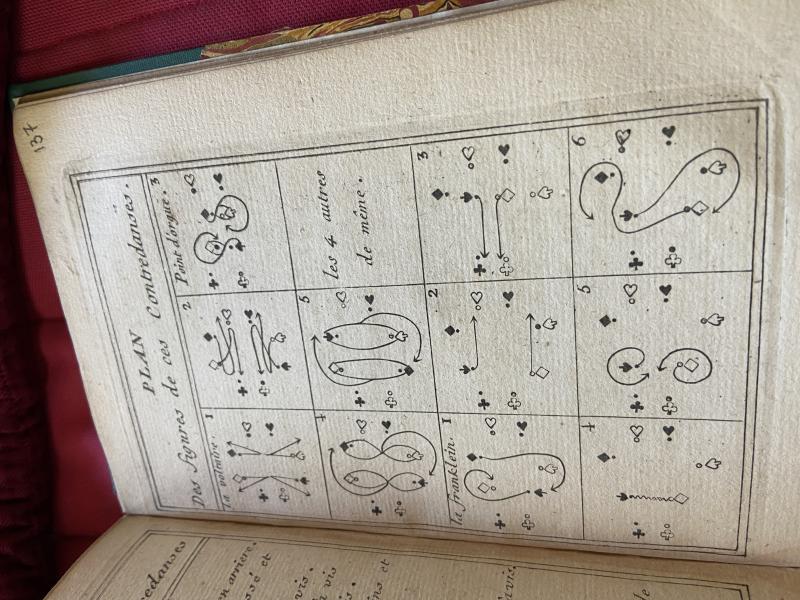 137
PLAN
Des figures de ces Contredanses.
1
2
Point d'orgue. 3
4
5
les 4 autres
de même.
la franklein. 1
2
3
4
5
6
redanses
en arriere.
ssé et
vis.
vis
ns et
vis.
de